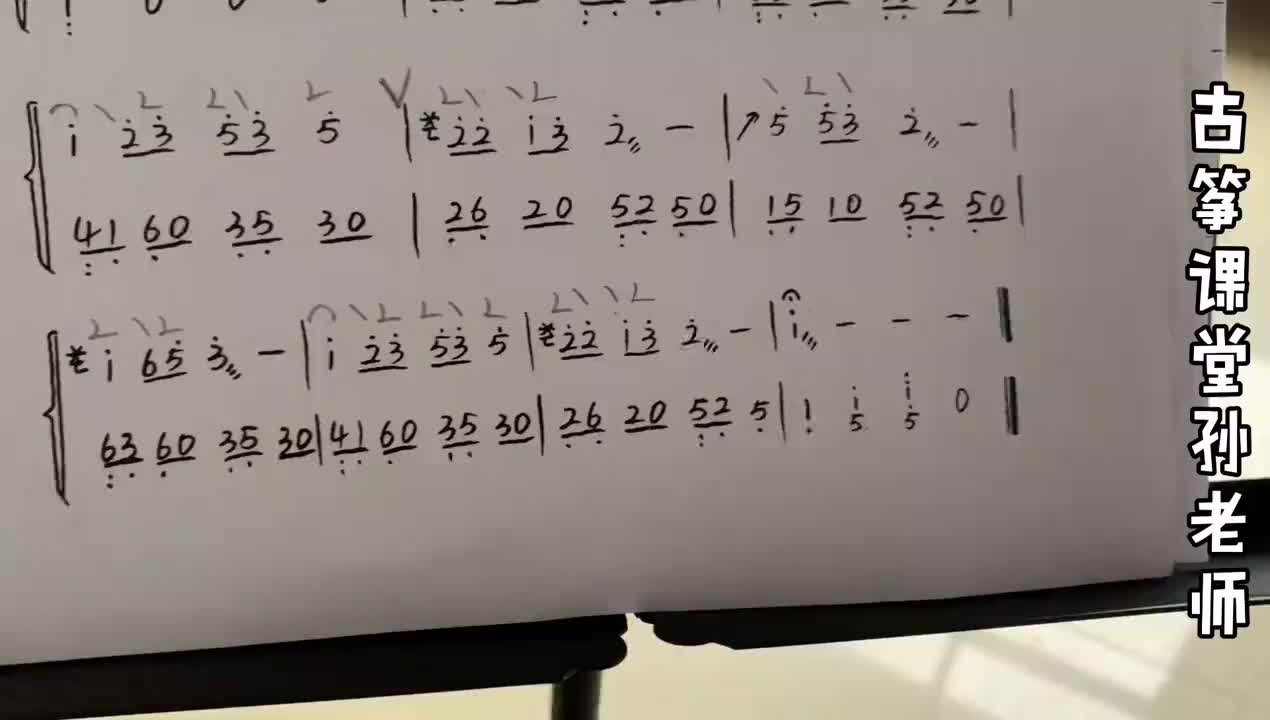 i 2̇3̇ 5̇3̇ 5̇ | 2̇2̇ i3̇ 2̇ - | ↗5̇ 5̇3̇ 2̇ - |
41 60 35 30 | 26 20 52 50 | 15 10 52 50 |
i 65̇ 3̇ - | i 2̇3̇ 5̇3̇ 5̇ | 2̇2̇ i3̇ 2̇ - | i - - -
63 60 35 30 | 41 60 35 30 | 26 20 52 5 | 1 i5 i5 0
古筝课堂孙老师